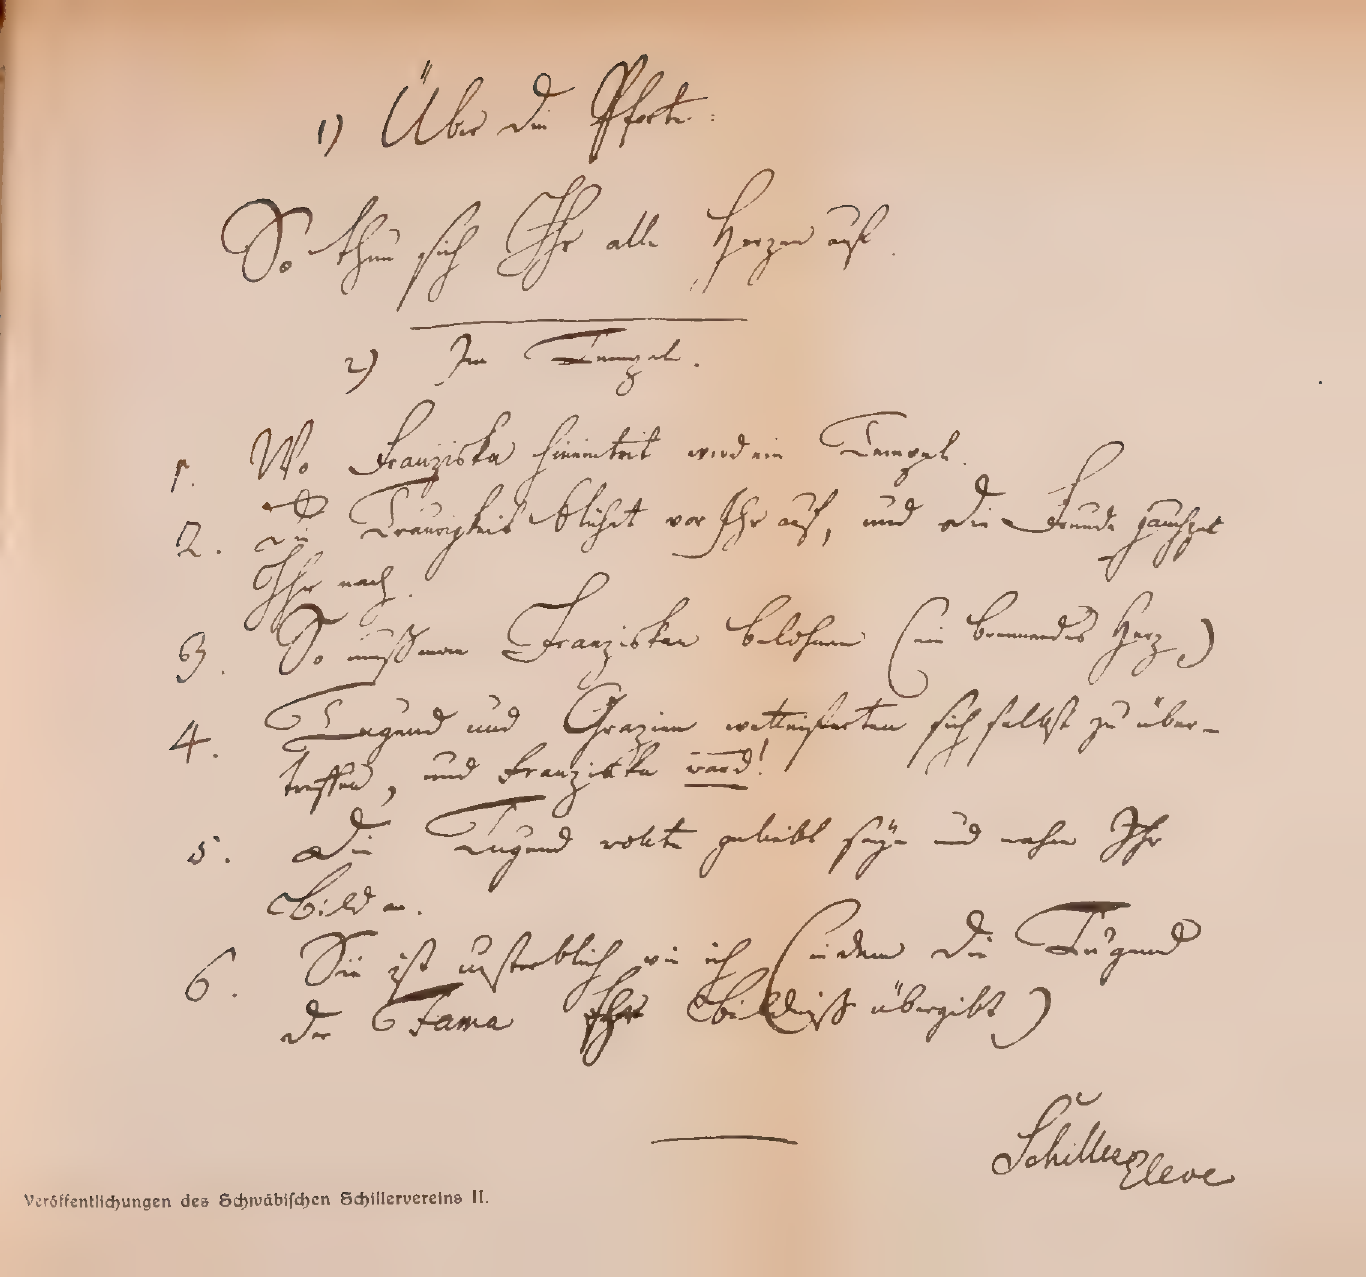 1) Über die Pforte:
So thun sich Ihr alle Herzen auf.
2) Im Tempel.
1. Wo Franziska hineintrit wird ein Tempel.
2. Die Traurigkeit blüht vor Ihr auf, und die Freude jauchzet
Ihr nach.
3. So muß man Franzisken belohnen (ein brennendes Herz)
4. Tugend und Grazien wetteiferten sich selbst zu über-
treffen, und Franziska ward!
5. Die Tugend wolte geliebt seyn und nahm Ihr
Bild an.
6. Sie ist unsterblich wie ich (indem die Tugend
der Fama Ihr Bildniß übergibt)
Schiller Eleve
Veröffentlichungen des Schwäbischen Schillervereins II.